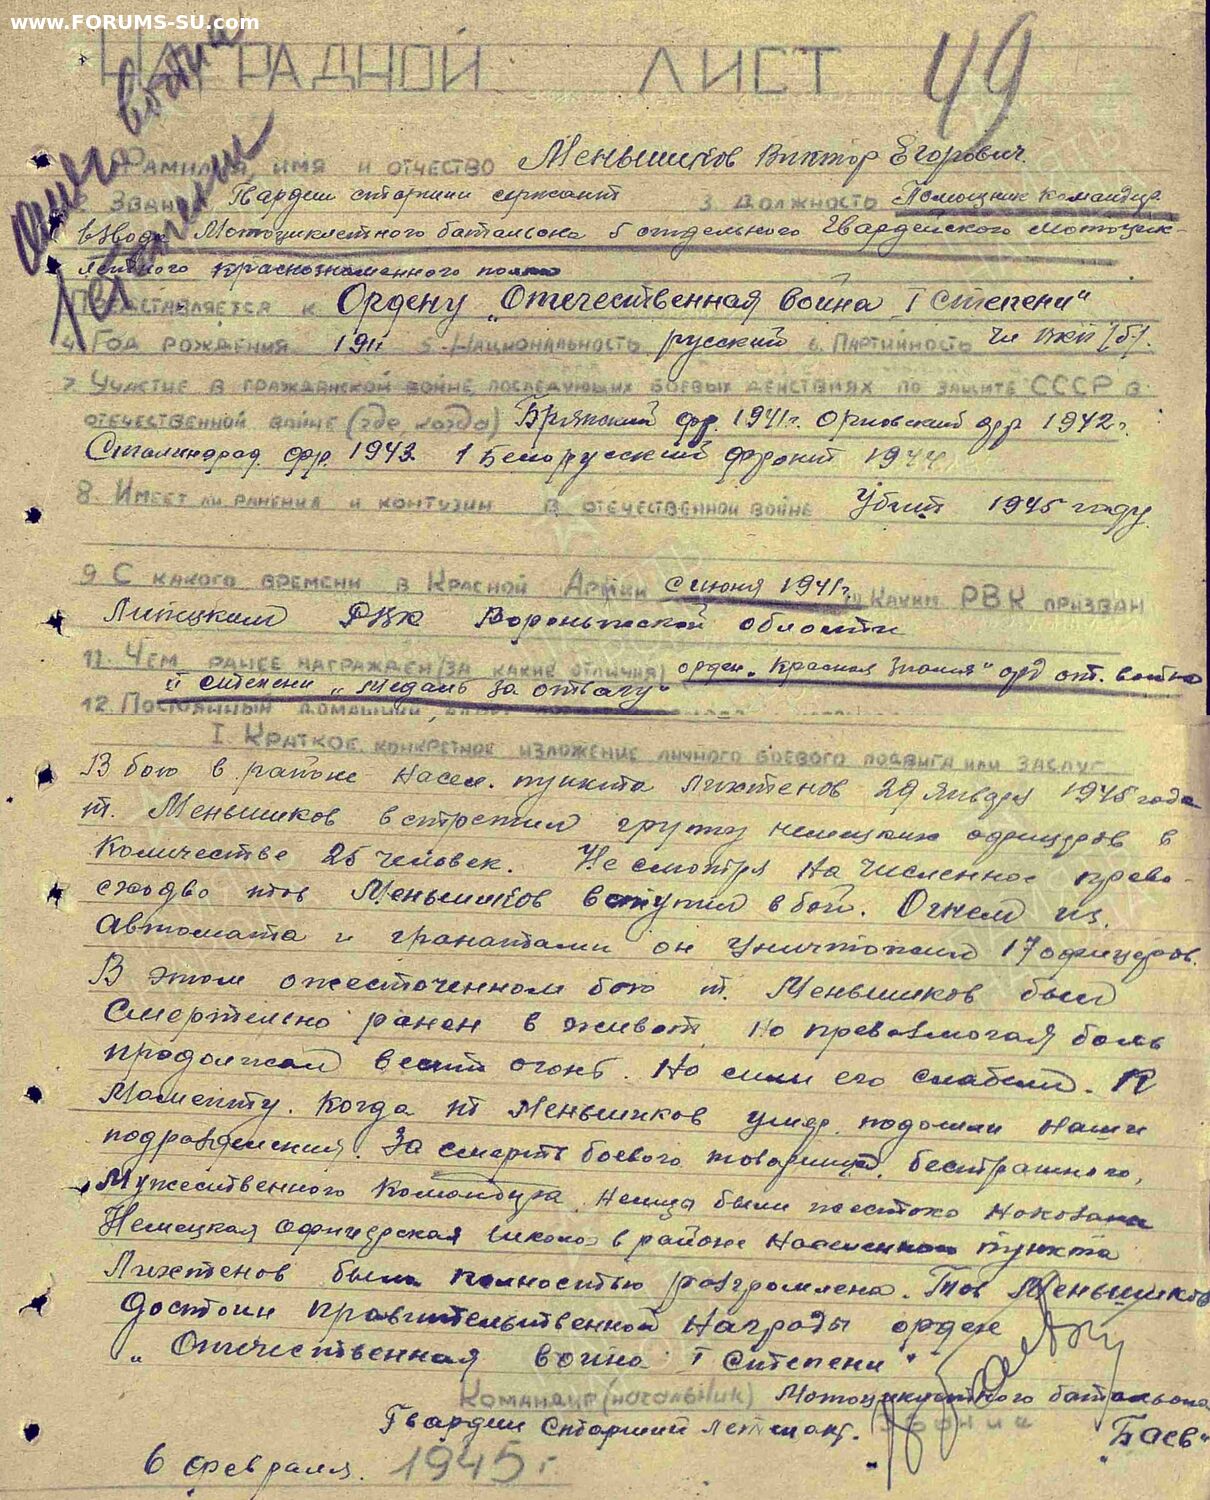 www.FORUMS-SU.com
НАГРАДНОЙ ЛИСТ 49
Отечеств войны
I степени
Фамилия, имя и отчество Меньшиков Виктор Егорович.
2. Звание Гвардии старшии сержант 3. Должность Помощник командира
взвода Мотоциклетного батальона 5 отдельного Гвардейского мотоцик-
летного краснознаменного полка
Представляется к Ордену „Отечественная война I степени"
4. Год рождения 1911 5. Национальность русский 6. Партийность Чл ВКП(б).
7. Участие в гражданской войне, последующих боевых действиях по защите СССР в
отечественной войне (где когда) Брянский фр. 1941 г. Орловский фр 1942 г.
Сталинград. фр. 1943. 1 Белорусский фронт 1944
8. Имеет ли ранения и контузии в отечественной войне Убит 1945 году.
9 С какого времени в Красной Армии с июня 1941 г. 10 Каким РВК призван
Липецким РВК Воронежской области
11. Чем ранее награжден (за какие отличия) орден „Красная Знамя" орд от. война
II степени „медаль за отвагу"
12. Постоянный домашний
I Краткое конкретное изложение личного боевого подвига или заслуг
В бою в районе насел. пункта Лихтенов 29 января 1945 года
т. Меньшиков встретил группу немецких офицеров в
количестве 25 человек. Не смотря на численное прево-
сходво тов Меньшиков вступил в бой. Огнем из
автомата и гранатами он уничтожил 17 офицеров.
В этом ожесточенном бою т. Меньшиков был
смертельно ранен в живот, но превозмогая боль
продолжал вести огонь. Но силы его слабели. К
моменту. Когда т Меньшиков умер. подошли наши
подразделения. За смерть боевого товарища, бесстрашного,
мужественного командира, немцы были жестоко наказаны
Немецкая офицерская школа в районе населенного пункта
Лихтенов была полностью разгромлена. Тов Меньшиков
достоин правительственной награды орден
„Отечественная война I степени"
Командир (начальник) Мотоциклетного батальона
Гвардии Старший лейтенант. „Баев"
6 февраля. 1945 г